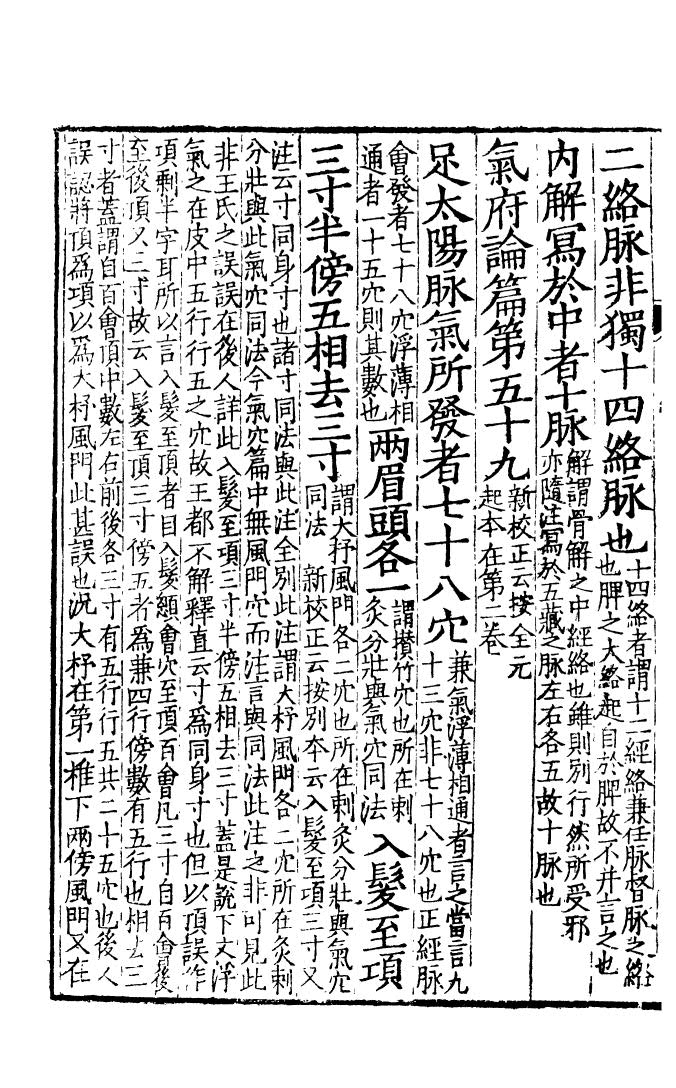 二絡脉非獨十四絡脉也十四絡者謂十二經絡兼任脉督脉之絡也脾之大絡起自於脾故不并言之也
内解冩於中者十脉解謂骨解之中經絡也雖則别行然所受邪亦隨注冩於五藏之脉左右各五故十脉也
氣府論篇第五十九新校正云按全元起本在第二卷
足太陽脉氣所發者七十八穴兼氣浮薄相通者言之當言九十三穴非七十八穴也正經脉
會發者七十八穴浮薄相通者一十五穴則其數也兩眉頭各一謂攅竹穴也所在刺灸分壯與氣穴同法入髮至項
三寸半傍五相去三寸謂大杼風門各二穴也所在刺灸分壯與氣穴同法 新校正云按别本云入髮至項三寸又
注云寸同身寸也諸寸同法與此注全别此注謂大杼風門各二穴所在灸刺
分壯與此氣穴同法今氣穴篇中無風門穴而注言與同法此注之非可見此
非王氏之誤誤在後人詳此入髮至項三寸半傍五相去三寸蓋是說下文浮
氣之在皮中五行行五之穴故王都不解釋直云寸爲同身寸也但以頂誤作
項剩半字耳所以言入髮至頂者自入髮顖會穴至頂百會凡三寸自百會後
至後頂又三寸故云入髮至頂三寸傍五者爲兼四行傍數有五行也相去三
寸者蓋謂自百會頂中數左右前後各三寸有五行行五共二十五穴也後人
誤認將頂爲項以爲大杼風門此甚誤也况大杼在第一椎下兩傍風門又在